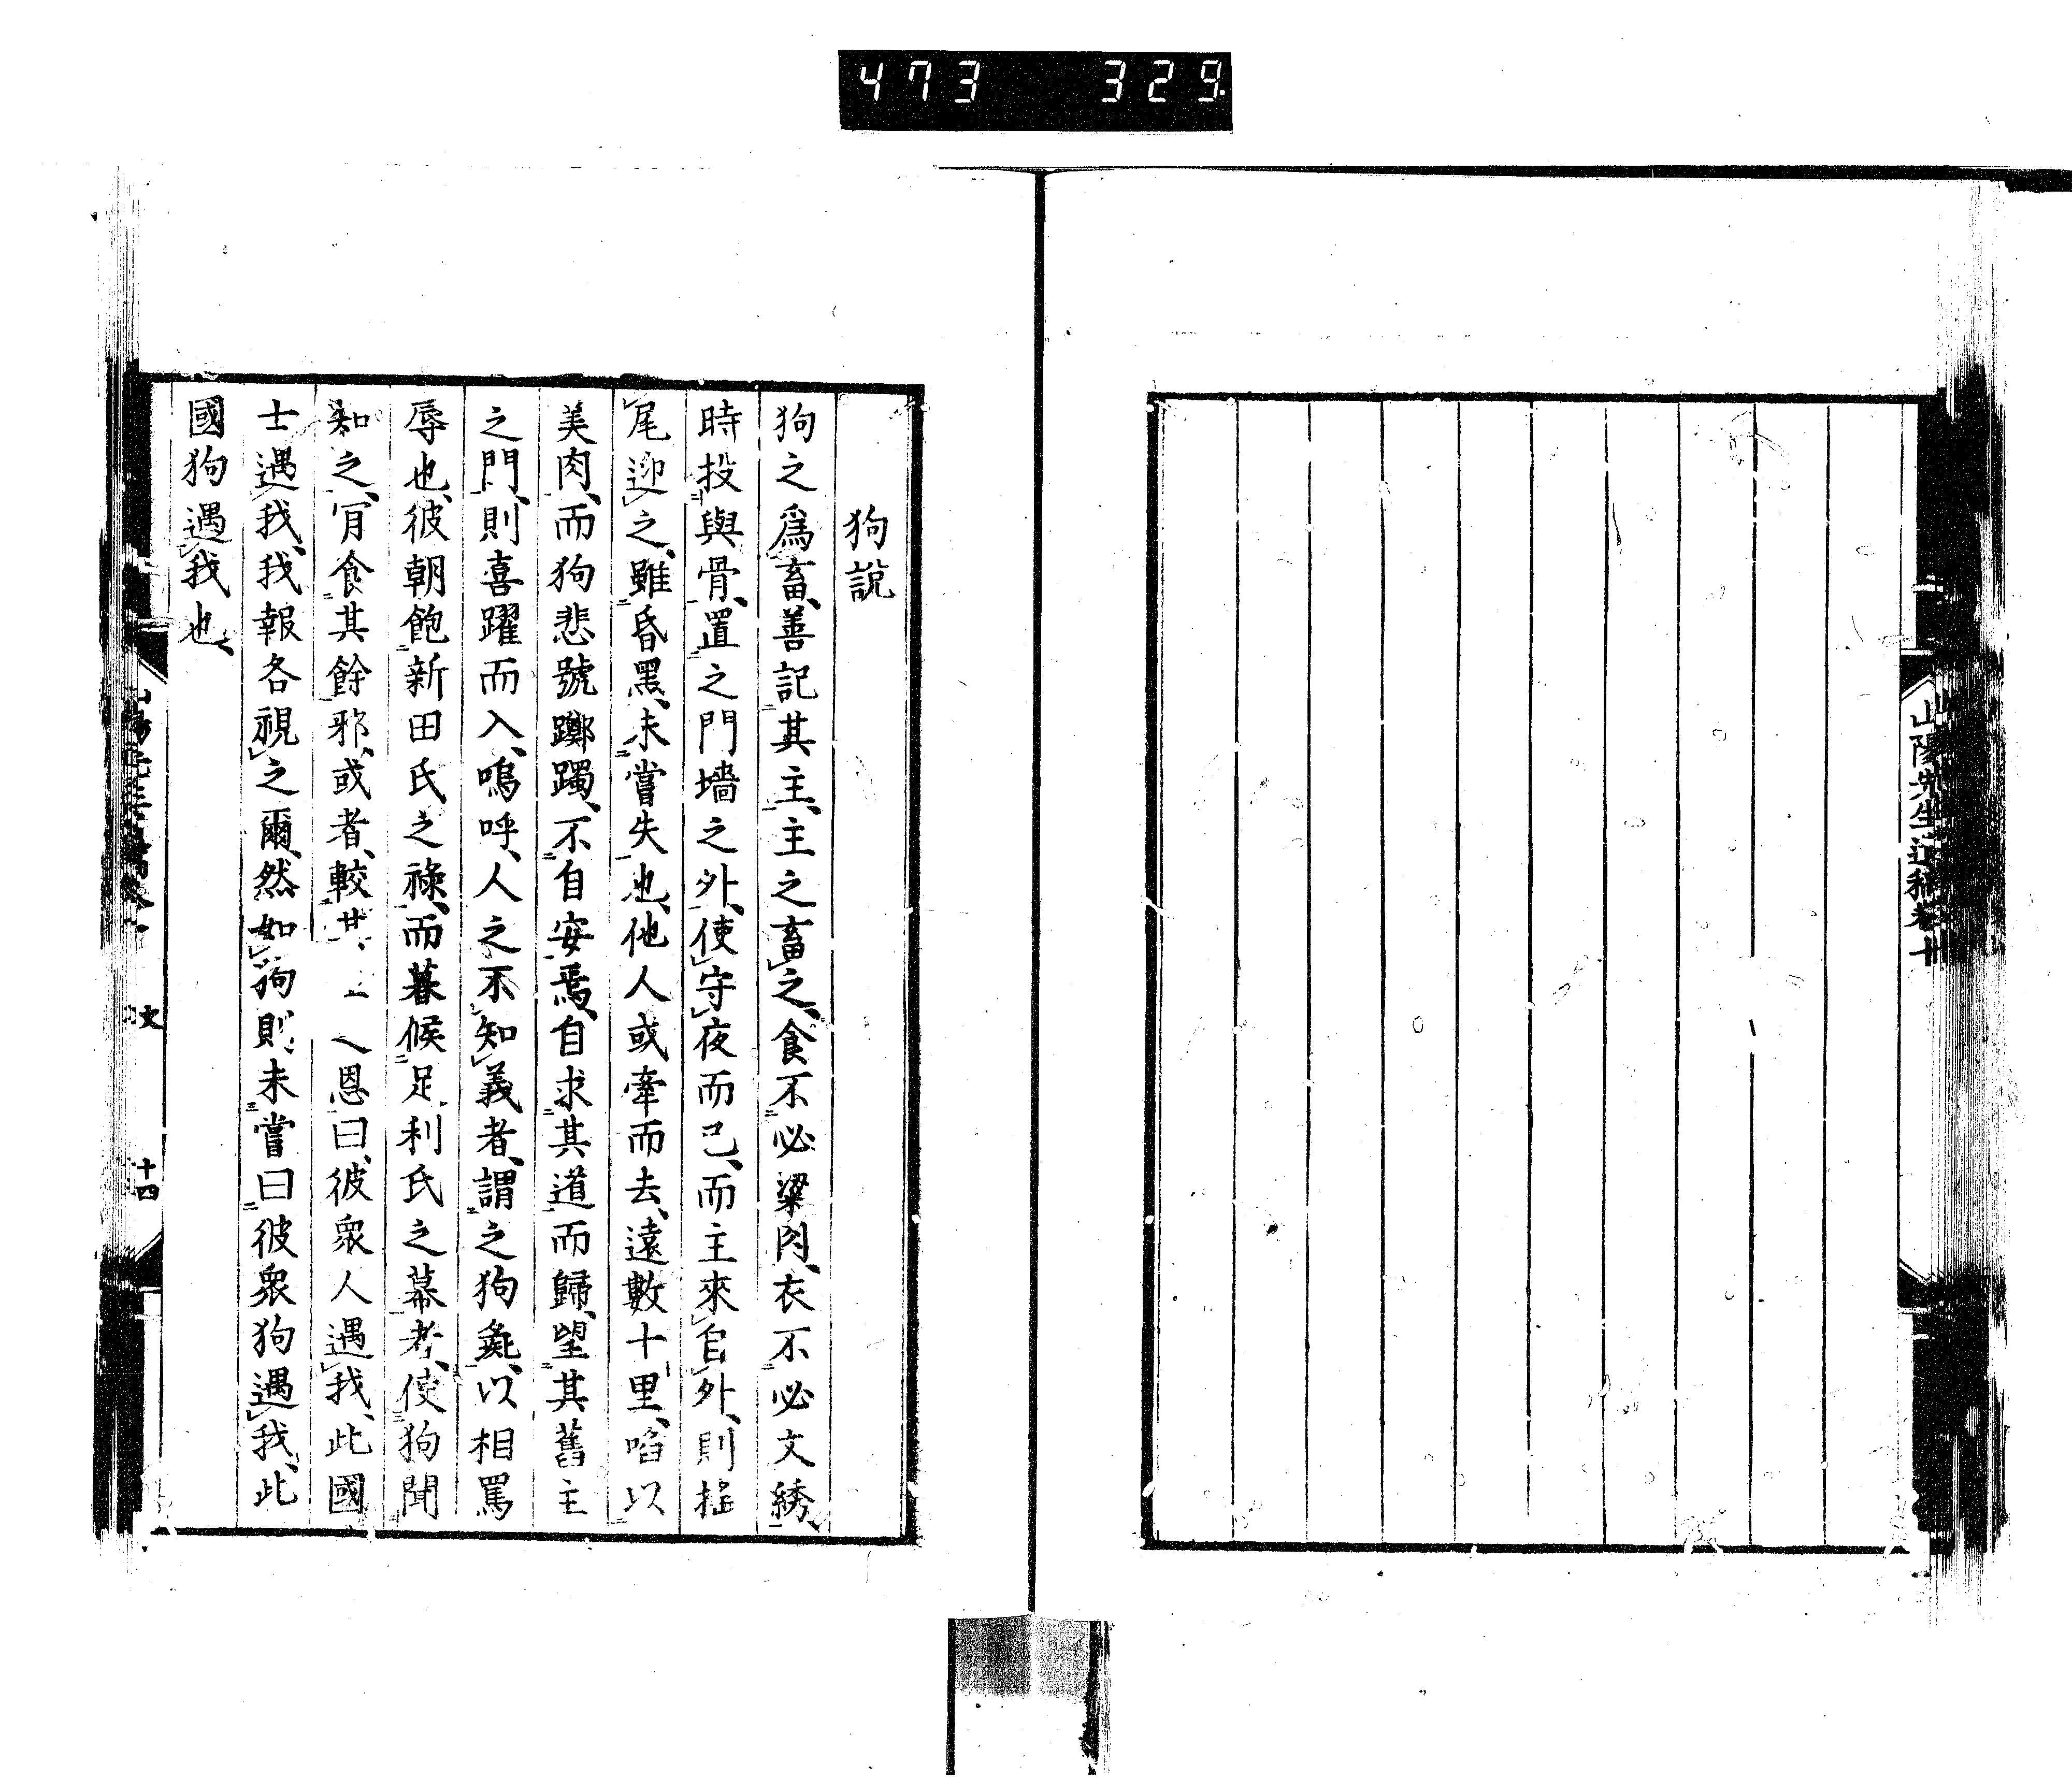 473 329
山陽先生遺稿卷十
狗説
狗之爲畜、善記其主、主之畜之、食不必粱肉、衣不必文綉、
時投與骨、置之門墻之外、使守夜而已、而主來自外、則搖
尾迎之、雖昏黑、未嘗失也、他人或牽而去、遠數十里、啗以
美肉、而狗悲號躑躅、不自安焉、自求其道而歸、望其舊主
之門、則喜躍而入、嗚呼、人之不知義者、謂之狗彘、以相罵
辱也、彼朝飽新田氏之祿、而暮候足利氏之幕者、使狗聞
知之、肎食其餘邪、或者、較其恩曰、彼衆人遇我、此國
士遇我、我報各視之爾、然如狗則未嘗曰彼衆狗遇我、此
國狗遇我也、
文
十四